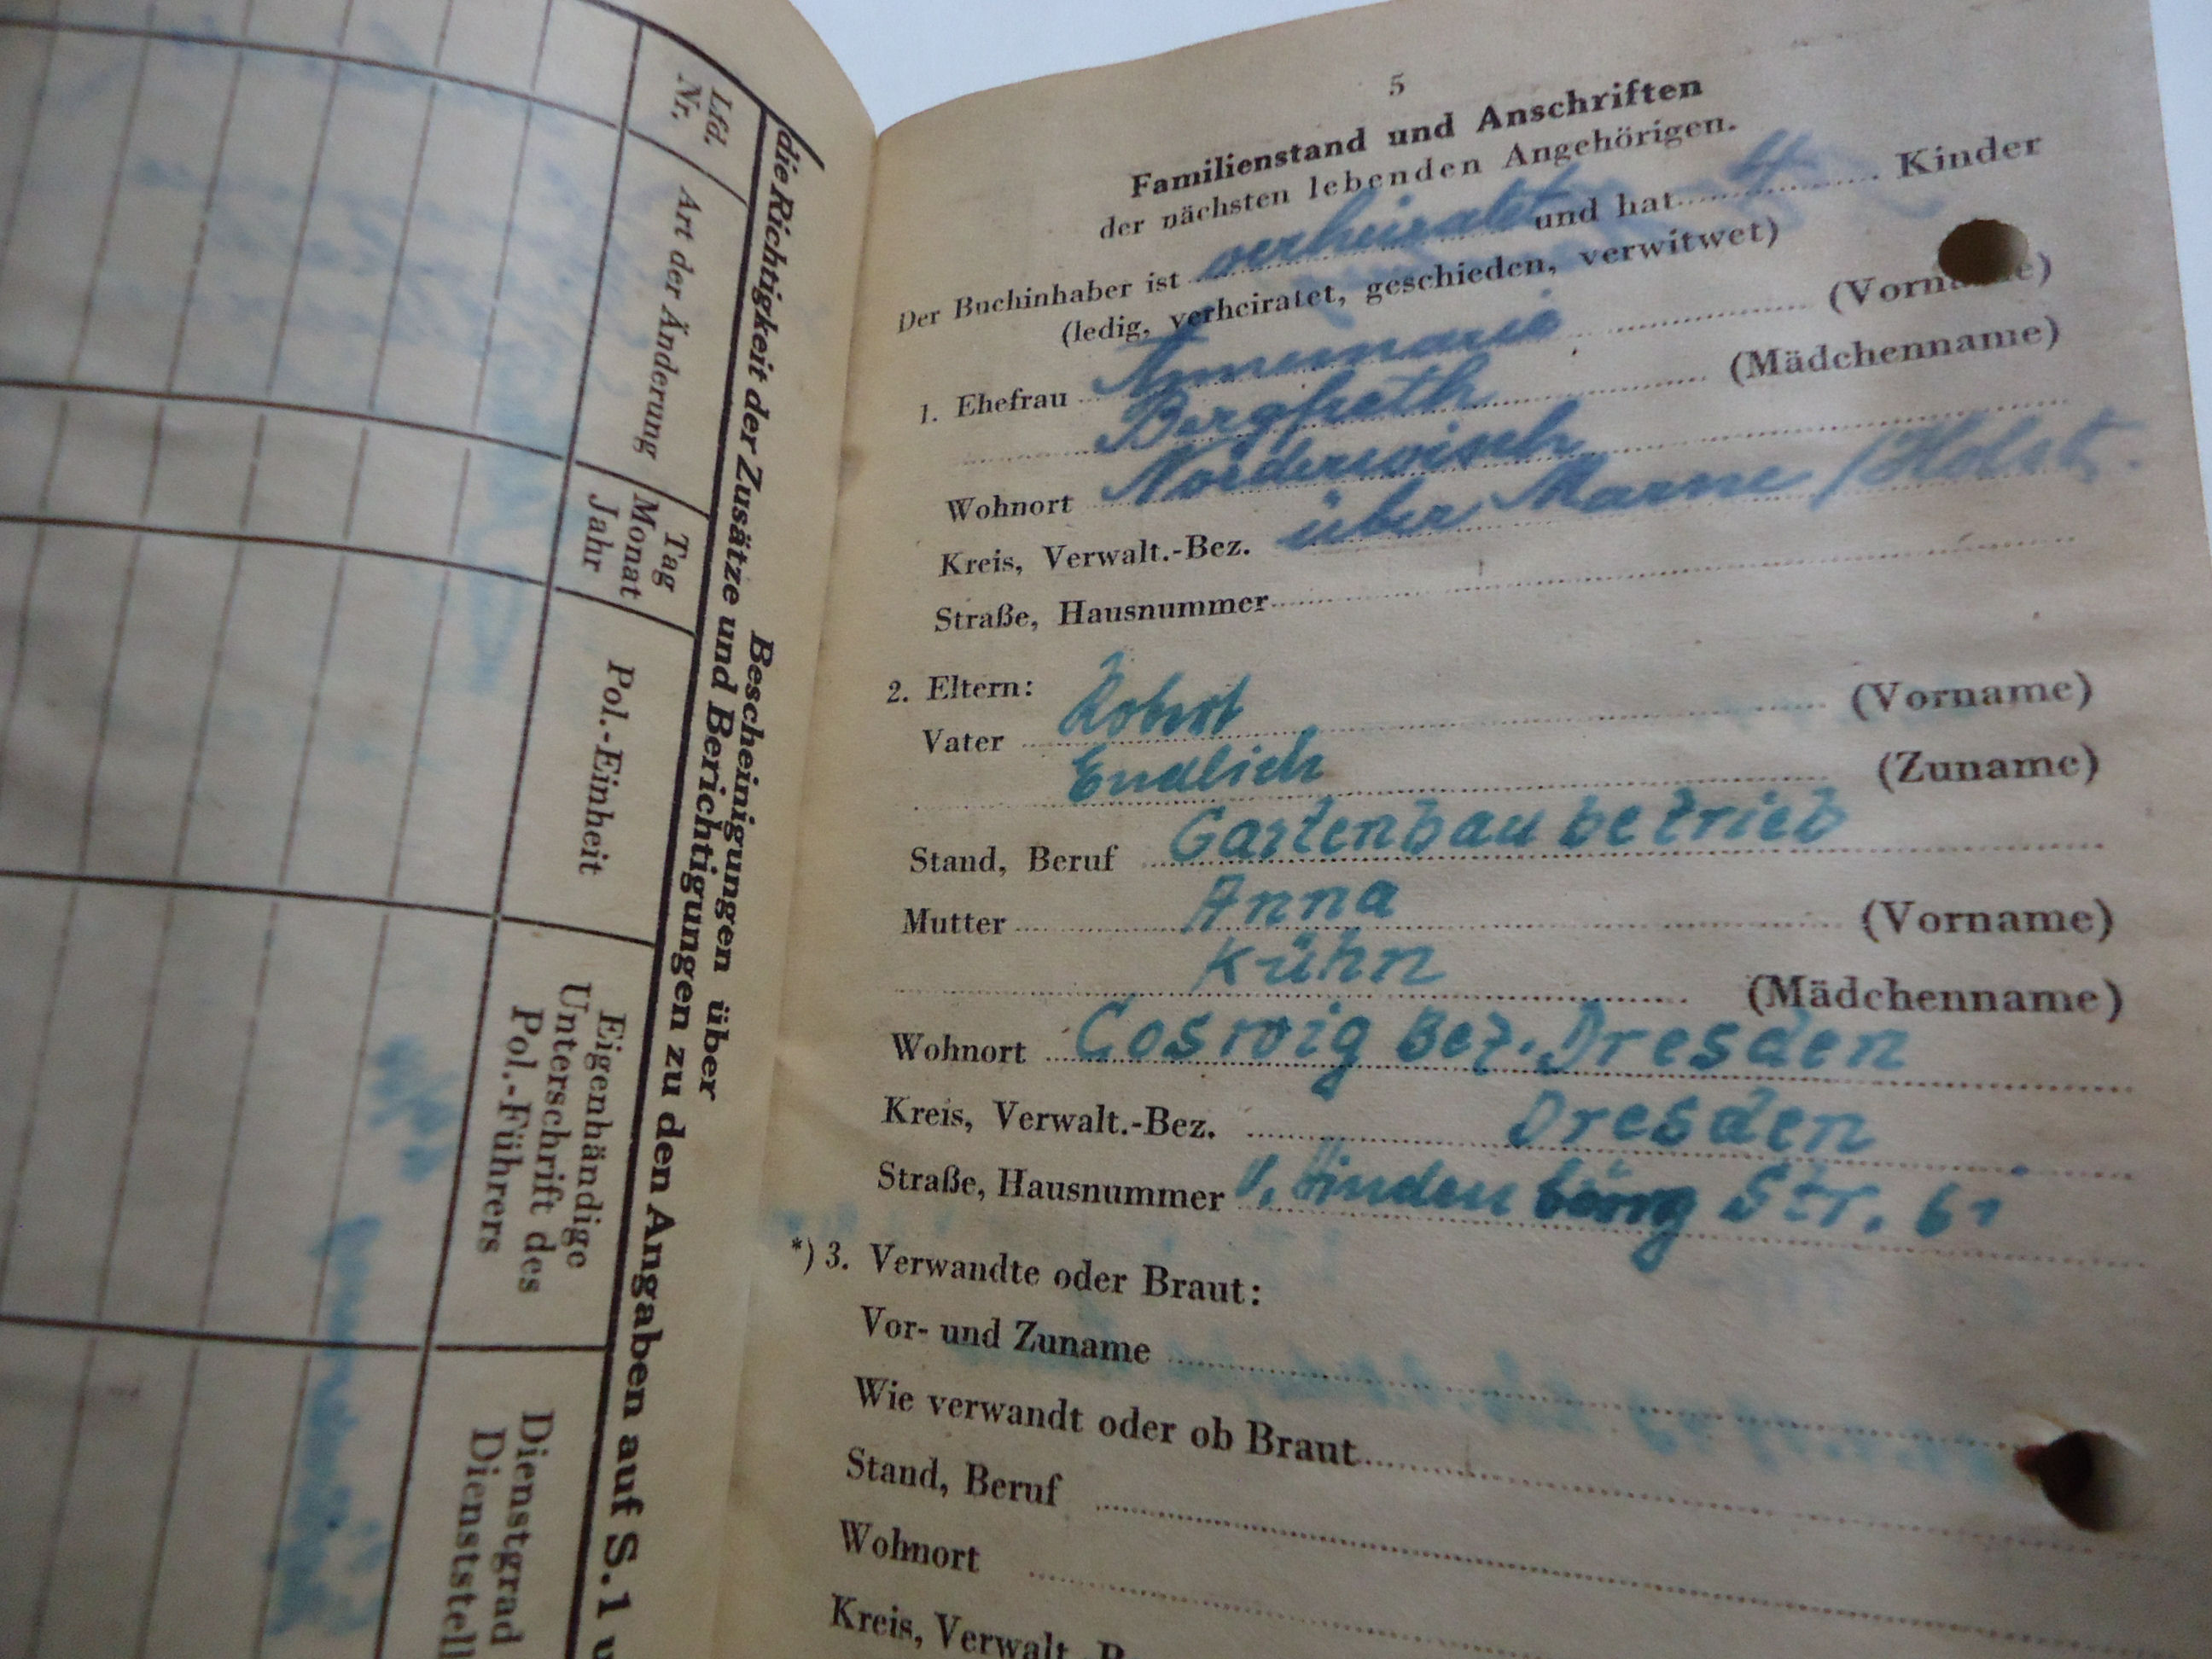 Bescheinigungen über
die Richtigkeit der Zusätze und Berichtigungen zu den Angaben auf S. 1 u
Lfd. Nr.
Art der Änderung
Tag Monat Jahr
Pol.-Einheit
Eigenhändige Unterschrift des Pol.-Führers
Dienstgrad Dienststell
5
Familienstand und Anschriften
der nächsten lebenden Angehörigen.
Der Buchinhaber ist verheiratet und hat 4 Kinder
(ledig, verheiratet, geschieden, verwitwet)
1. Ehefrau Annemarie (Vorname)
Bergfreth (Mädchenname)
Wohnort Norderwisch
Kreis, Verwalt.-Bez. über Marne / Holst.
Straße, Hausnummer
2. Eltern:
Vater Robert (Vorname)
Endlich (Zuname)
Stand, Beruf Gartenbaubetrieb
Mutter Anna (Vorname)
Kühn (Mädchenname)
Wohnort Coswig Bez. Dresden
Kreis, Verwalt.-Bez. Dresden
Straße, Hausnummer v. Hindenburg Str. 61
*) 3. Verwandte oder Braut:
Vor- und Zuname
Wie verwandt oder ob Braut
Stand, Beruf
Wohnort
Kreis, Verwalt.-B